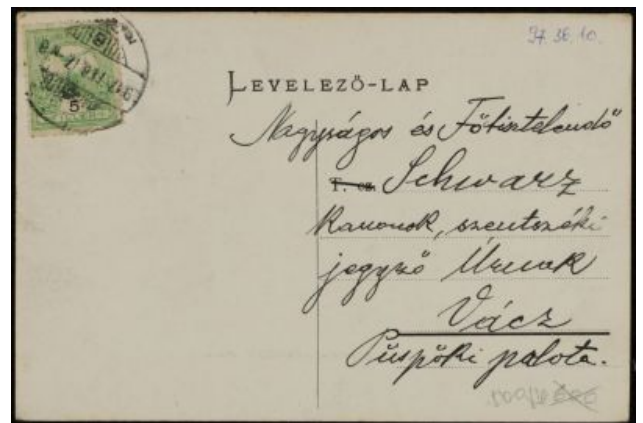 97.36.10.
LEVELEZŐ-LAP
Nagyságos és Főtisztelendő
T. cz. Schwarz
kanonok, szentszéki
jegyző Úrnak
Vácz
Püspöki palota.
5